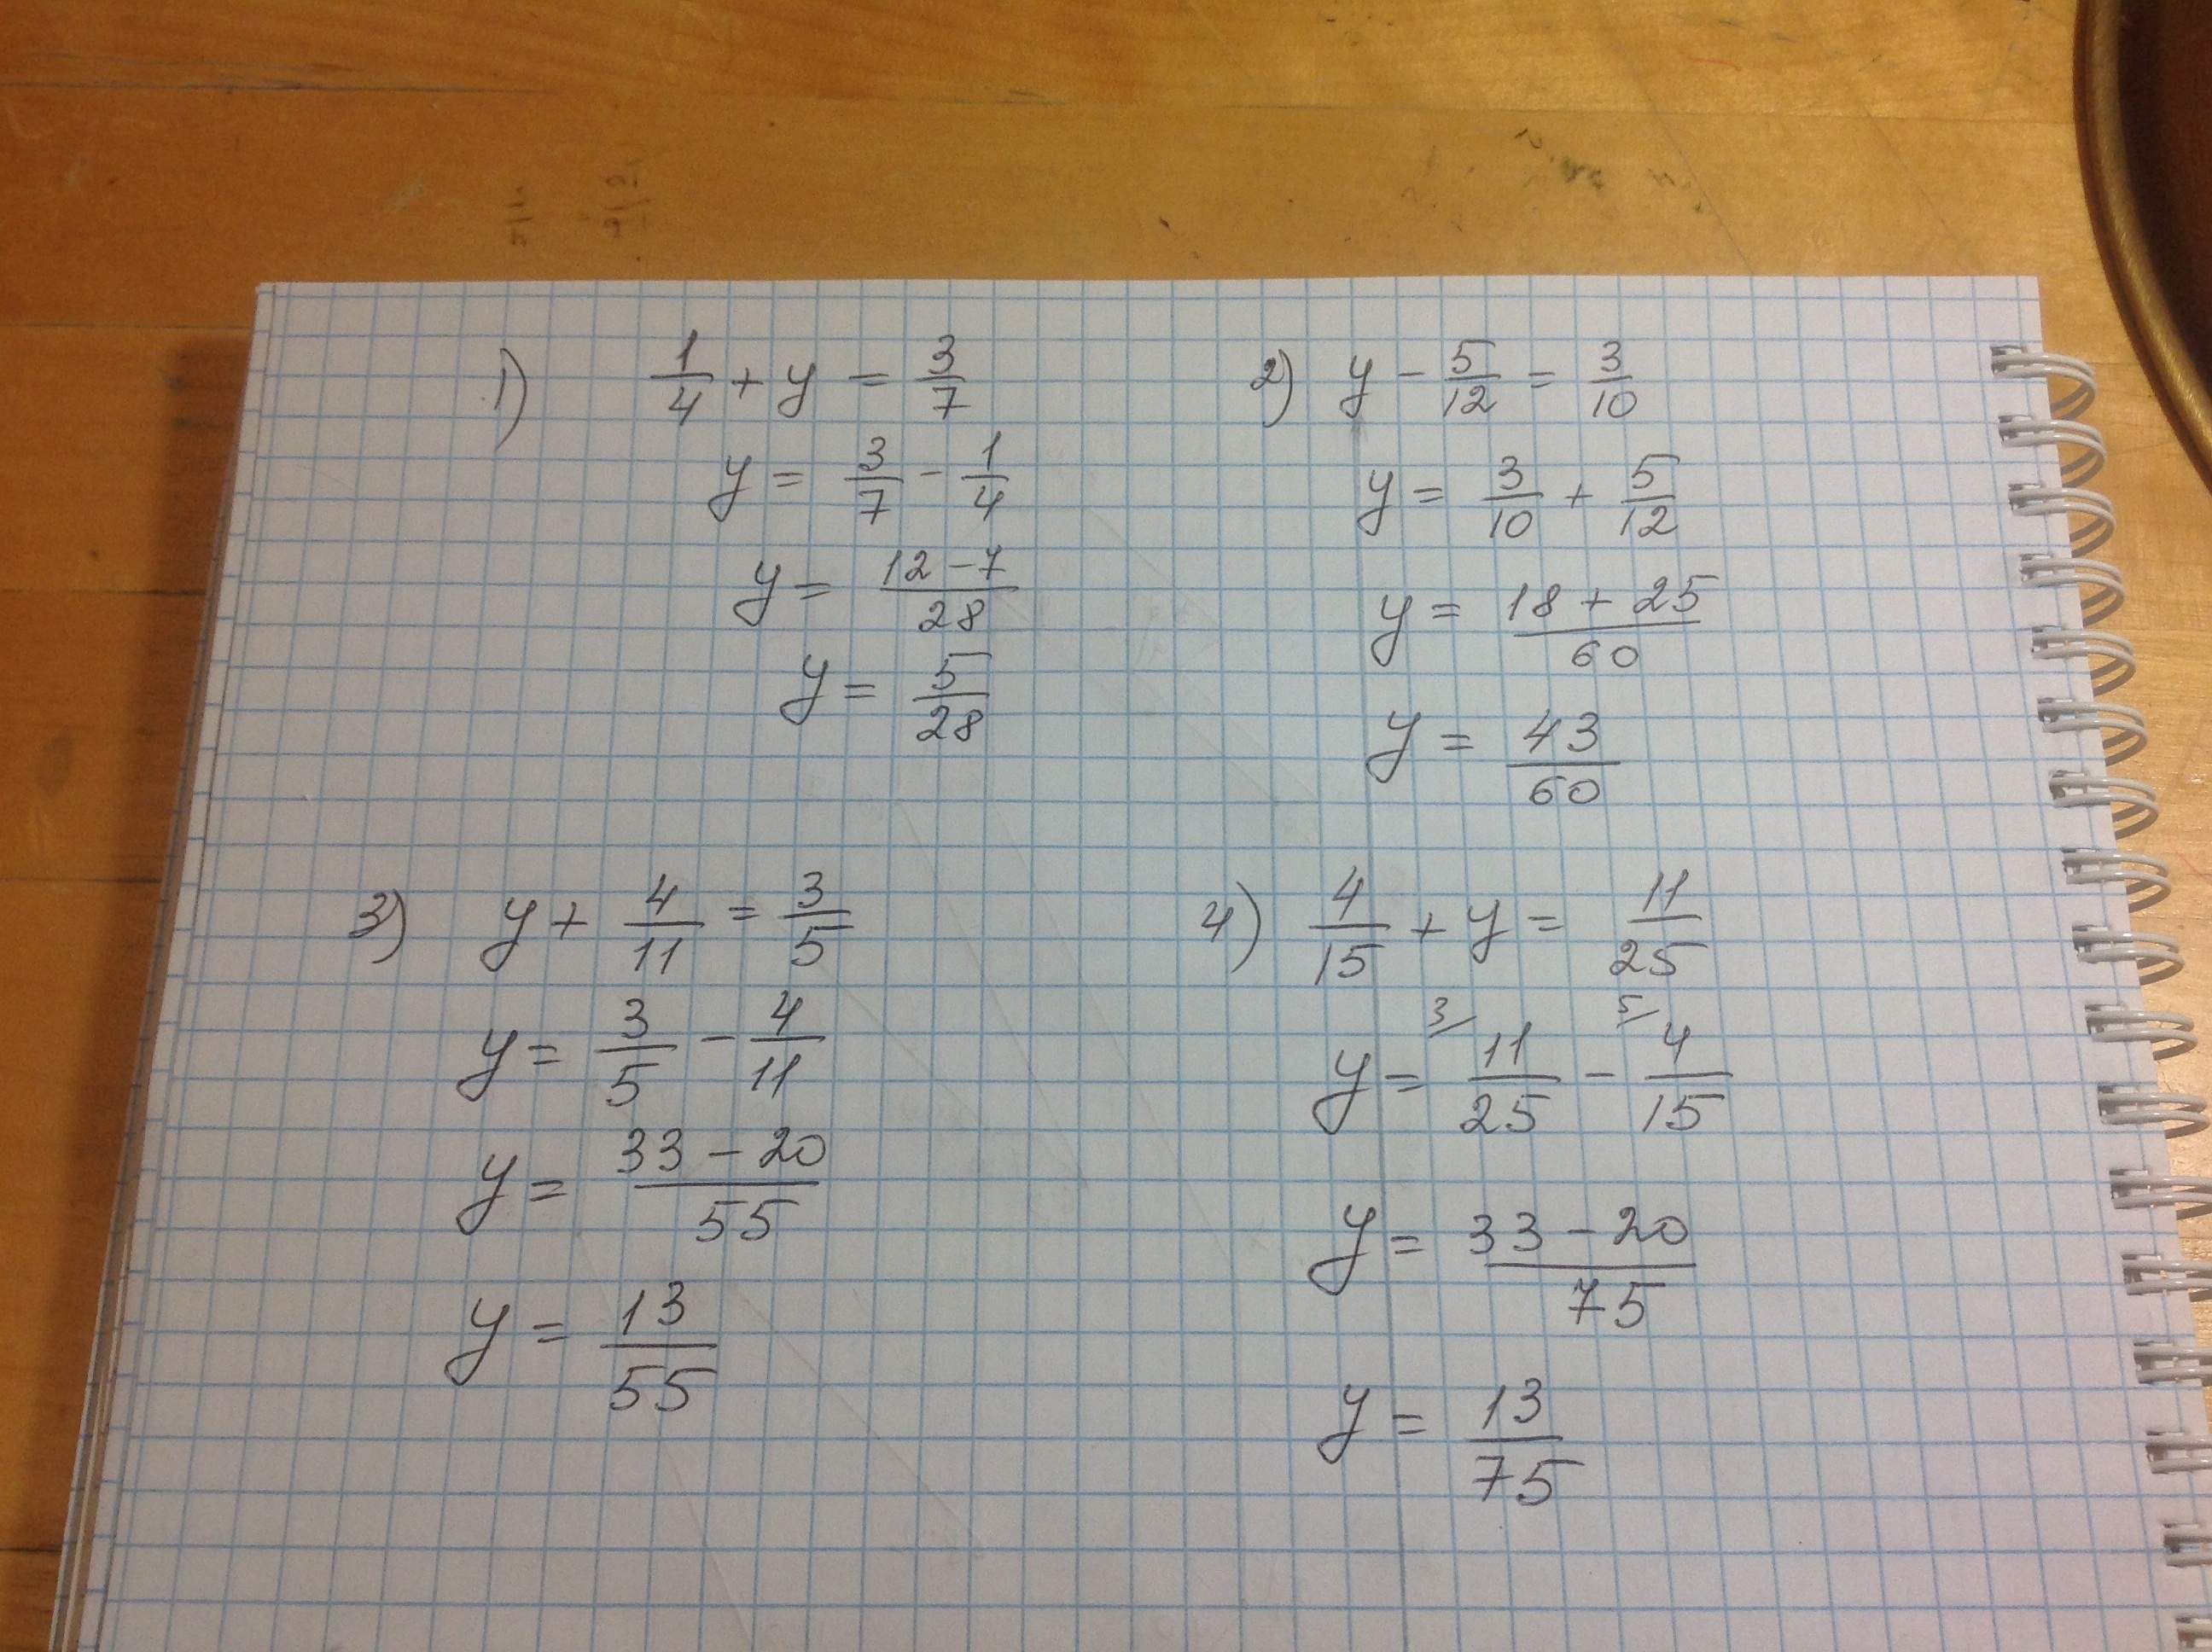 1) 1/4 + y = 3/7
y = 3/7 - 1/4
y = (12 - 7)/28
y = 5/28
2) y - 5/12 = 3/10
y = 3/10 + 5/12
y = (18 + 25)/60
y = 43/60
3) y + 4/11 = 3/5
y = 3/5 - 4/11
y = (33 - 20)/55
y = 13/55
4) 4/15 + y = 11/25
3/ 5/
y = 11/25 - 4/15
y = (33 - 20)/75
y = 13/75